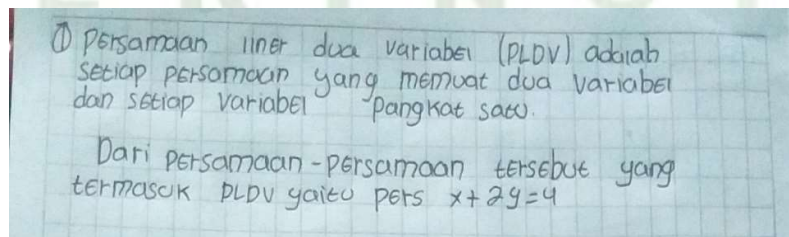 ① Persamaan liner dua variabel (PLDV) adalah
setiap persamaan yang memuat dua variabel
dan setiap variabel pangkat satu.
Dari persamaan-persamaan tersebut yang
termasuk PLDV yaitu pers x+2y=4